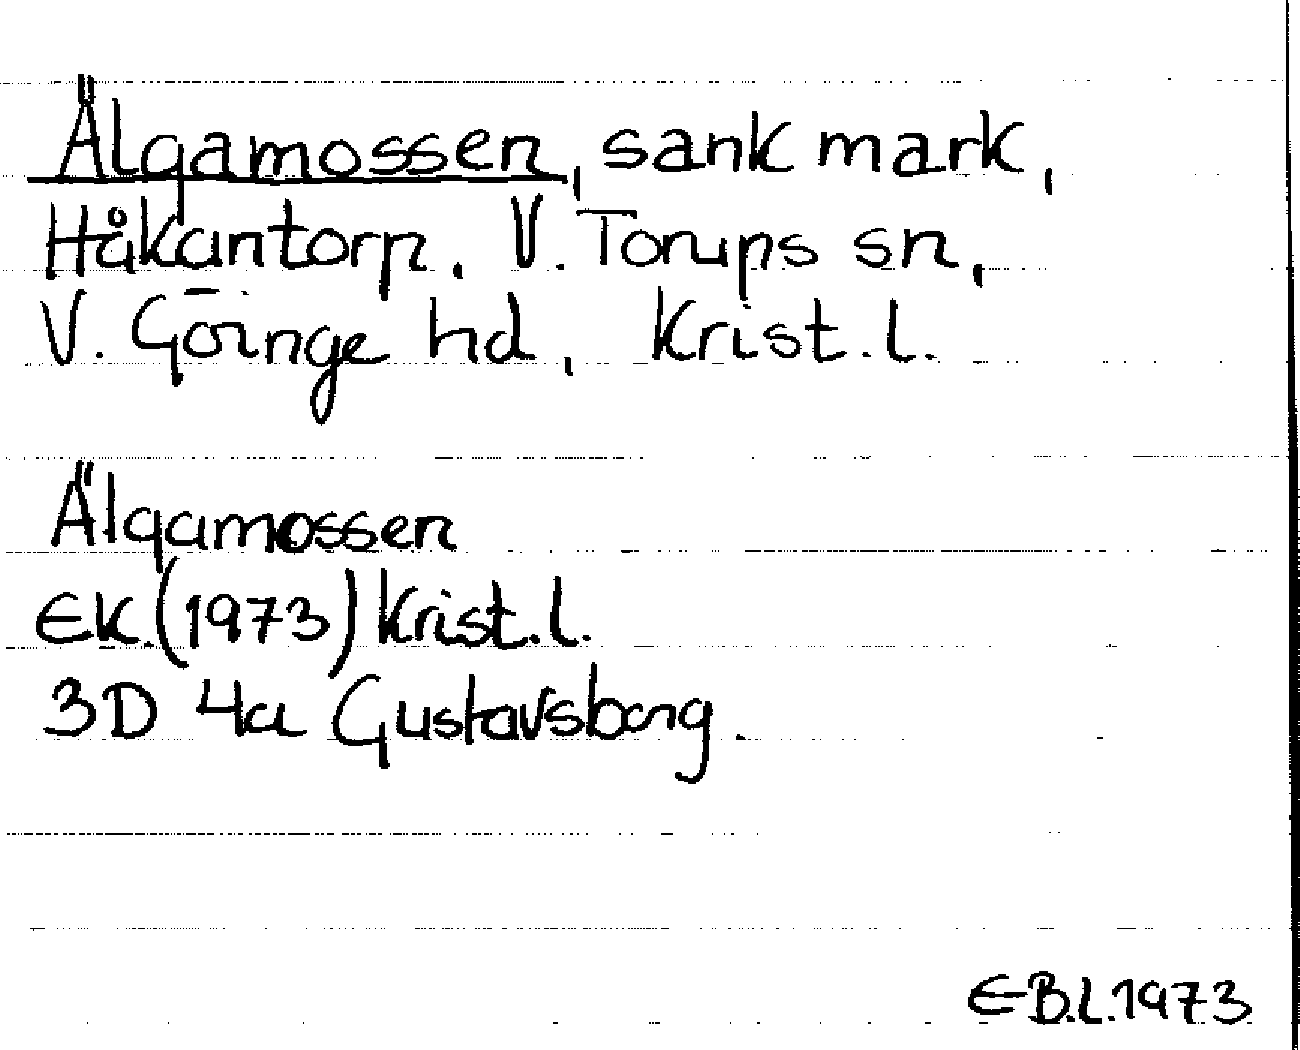 Älgamossen, sank mark,
Håkantorp, V. Torups sn,
V. Göinge hd, Krist. l.
Älgamossen
EK. (1973) Krist. l.
3D 4a Gustavsborg.
E-B.L. 1973